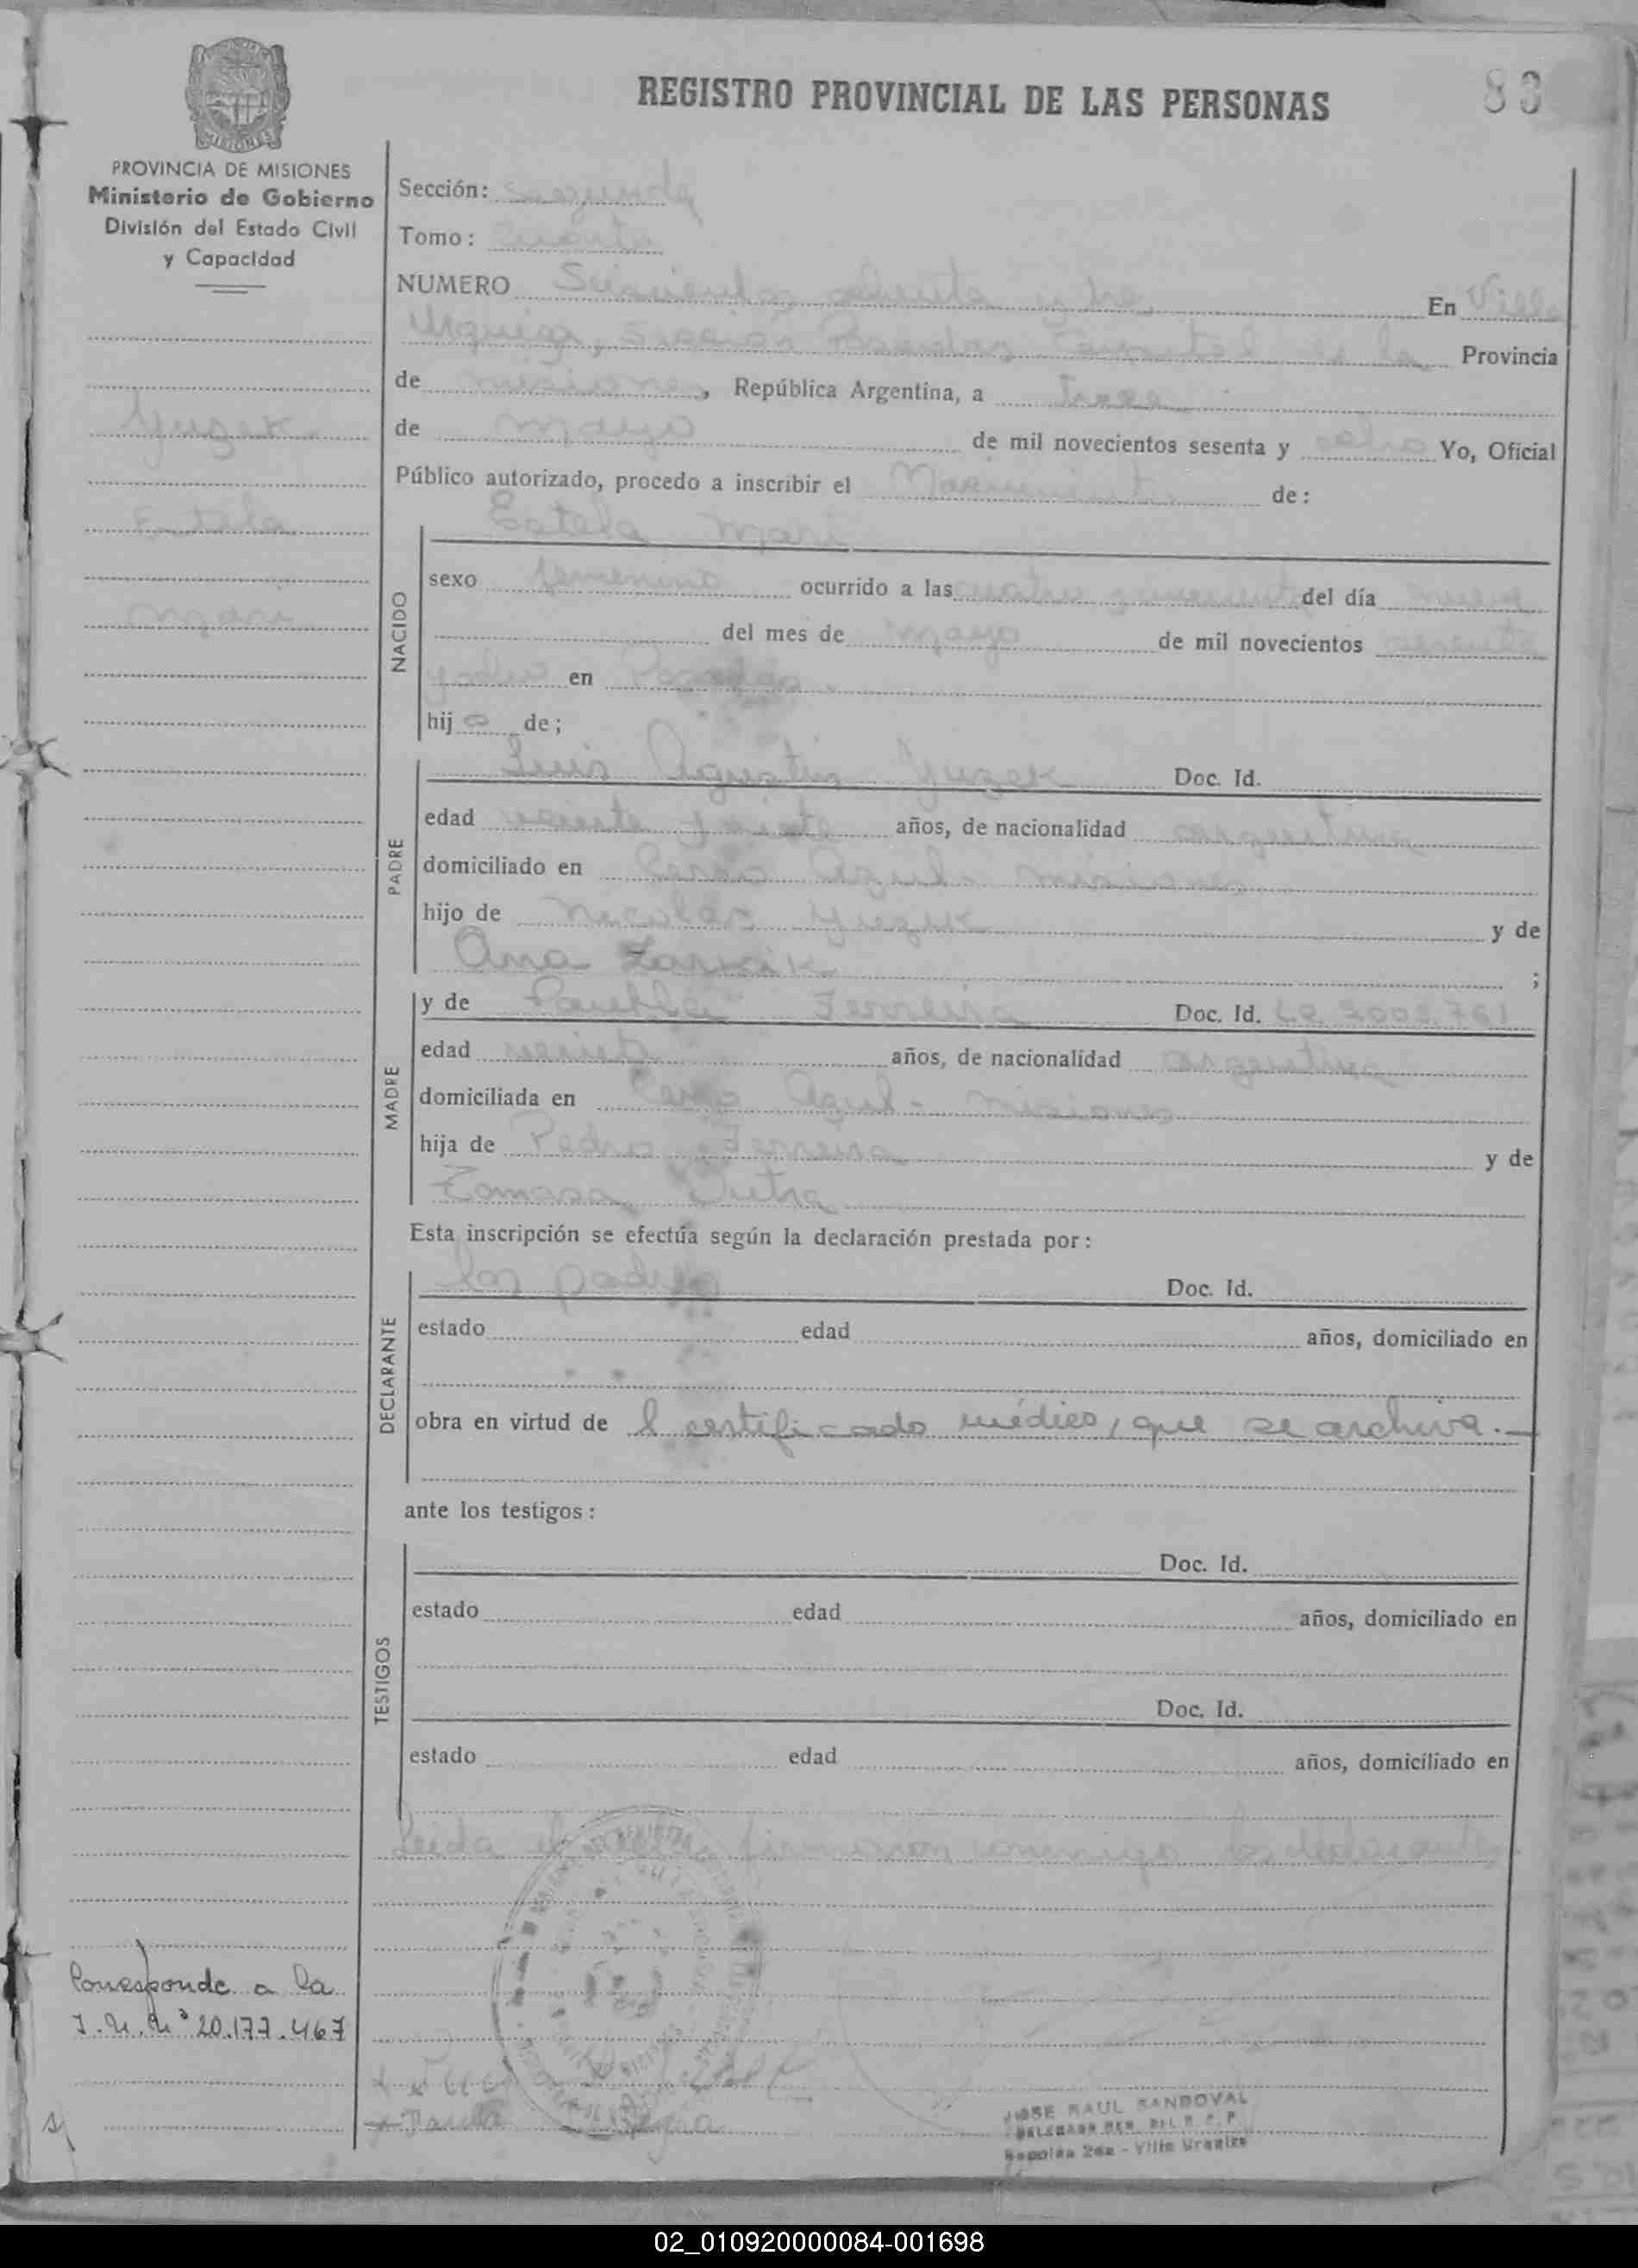 REGISTRO PROVINCIAL DE LAS PERSONAS
83
PROVINCIA DE MISIONES
Ministerio de Gobierno
División del Estado Civil
y Capacidad
Sección: Segunda
Tomo: Cuarto
NUMERO Seiscientos ochenta y tres En Villa
Urquiza, Sección Posadas, Capital de la Provincia
de misiones, República Argentina, a trece
de mayo de mil novecientos sesenta y ocho Yo, Oficial
Público autorizado, procedo a inscribir el Nacimiento de:
Yuzek
Estela
mari
NACIDO
Estela mari
sexo femenino ocurrido a las cuatro y del día nueve
del mes de mayo de mil novecientos sesenta
y ocho en Posadas.
hij a de;
PADRE
Luis Agustin Yuzek Doc. Id.
edad veinte y siete años, de nacionalidad argentina
domiciliado en Cerro Azul - misiones
hijo de Nicolas Yuzek y de
Ana ;
MADRE
y de Ferreira Doc. Id.
edad veinte años, de nacionalidad argentina
domiciliada en Cerro Azul - misiones
hija de Pedro Ferreira y de
Tomasa Dutra
Esta inscripción se efectúa según la declaración prestada por:
DECLARANTE
los padres Doc. Id.
estado edad años, domiciliado en
obra en virtud de l certificado médico, que se archiva.-
ante los testigos:
TESTIGOS
Doc. Id.
estado edad años, domiciliado en
Doc. Id.
estado edad años, domiciliado en
Leida el acta firmaron conmigo los declarantes
Corresponde a la
20.177.467
JOSE RAUL SANDOVAL
2da - Villa Urquiza
02_010920000084-001698